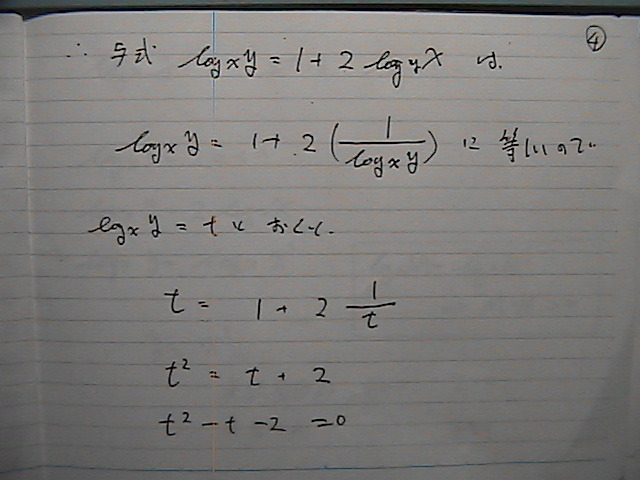 ④
∴ 与式 log_x y = 1 + 2 log_y x は、
log_x y = 1 + 2 ( 1 / log_x y ) に 等しいので
log_x y = t と おくと、
t = 1 + 2 1/t
t² = t + 2
t² - t - 2 = 0